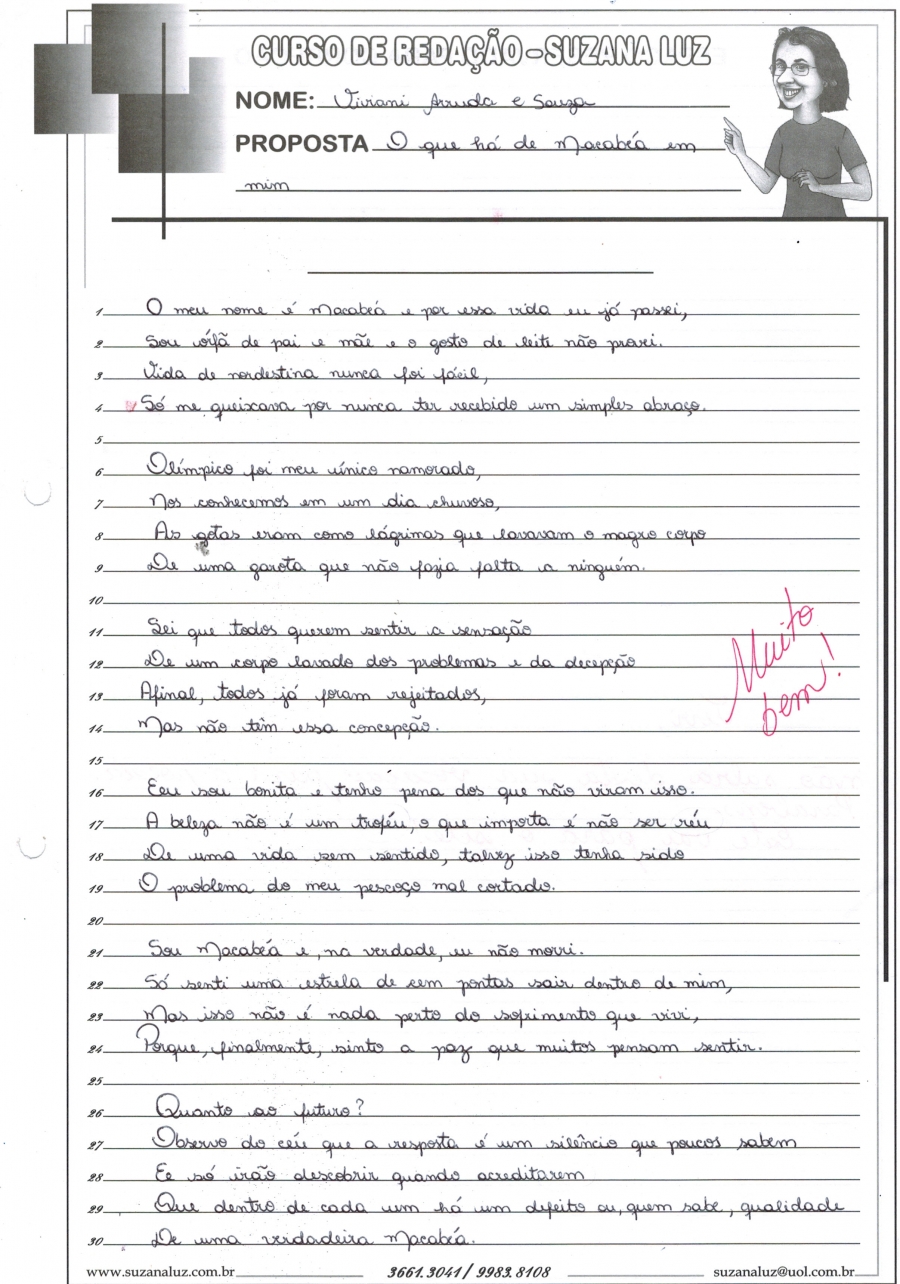 CURSO DE REDAÇÃO - SUZANA LUZ
NOME: Viviani Arruda e Souza
PROPOSTA O que há de Macabéa em
mim
1 O meu nome é Macabéa e por essa vida eu já passei,
2 Sou órfã de pai e mãe e o gosto de leite não provei.
3 Vida de nordestina nunca foi fácil,
4 Só me queixava por nunca ter recebido um simples abraço.
5
6 Olímpico foi meu único namorado,
7 Nos conhecemos em um dia chuvoso,
8 As gotas eram como lágrimas que lavavam o magro corpo
9 De uma garota que não fazia falta a ninguém.
10
11 Sei que todos querem sentir a sensação
12 De um corpo lavado dos problemas e da decepção
13 Afinal, todos já foram rejeitados,
14 Mas não têm essa concepção.
15
16 Eeu sou bonita e tenho pena dos que não viram isso.
17 A beleza não é um troféu, o que importa é não ser réu
18 De uma vida sem sentido, talvez isso tenha sido
19 O problema do meu pescoço mal cortado.
20
21 Sou Macabéa e, na verdade, eu não morri.
22 Só senti uma estrela de cem pontas sair dentro de mim,
23 Mas isso não é nada perto do sofrimento que vivi,
24 Porque, finalmente, sinto a paz que muitos pensam sentir.
25
26 Quanto ao futuro?
27 Observo do céu que a resposta é um silêncio que poucos sabem
28 Ee só irão descobrir quando acreditarem
29 Que dentro de cada um há um defeito ou, quem sabe, qualidade
30 De uma verdadeira Macabéa.
Muito
bem!
www.suzanaluz.com.br 3661.3041 / 9983.8108 suzanaluz@uol.com.br